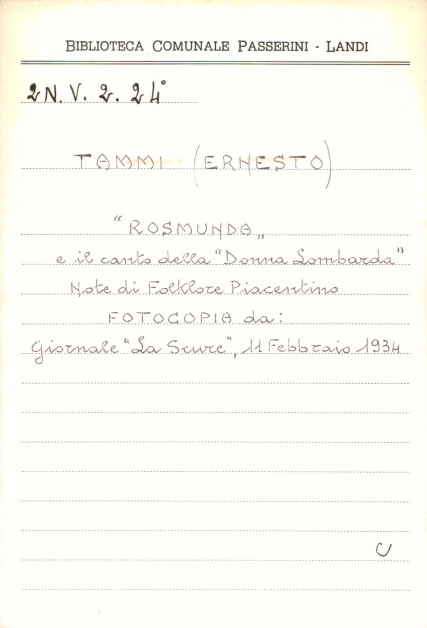 BIBLIOTECA COMUNALE PASSERINI - LANDI
2N. V. 2. 24°
TAMMI (ERNESTO)
"ROSMUNDA„
e il canto della "Donna Lombarda"
Note di Folklore Piacentino
FOTOCOPIA da:
Giornale "La Scure", 11 Febbraio 1934
U